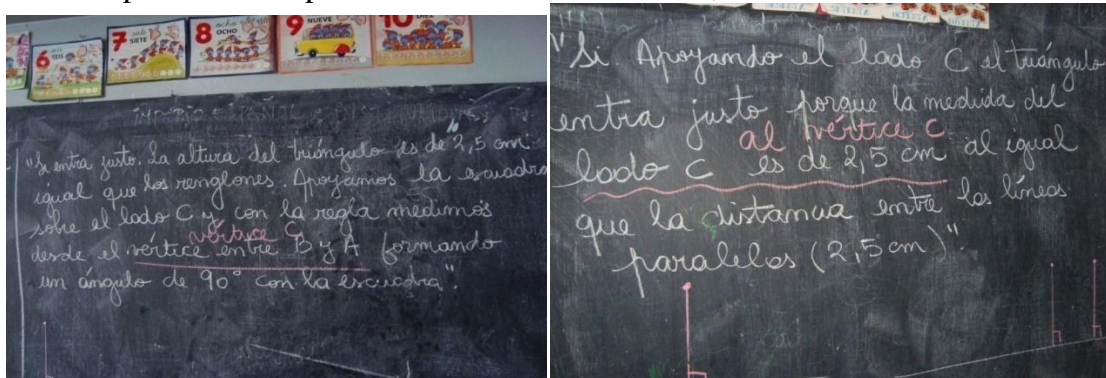 6 SEIS
7 siete SIETE
8 ocho OCHO
9 NUEVE
10 DIEZ
"Si entra justo. La altura del triángulo es de 2,5 cm
igual que los renglones. Apoyamos la escuadra
sobre el lado C y con la regla medimos
vértice C
desde el vértice entre B y A formando
un ángulo de 90° con la escuadra".
"Si. Apoyando el lado C el triángulo
entra justo porque la medida del
al vértice C
lado C es de 2,5 cm al igual
que la distancia entre las líneas
paralelas (2,5 cm)".